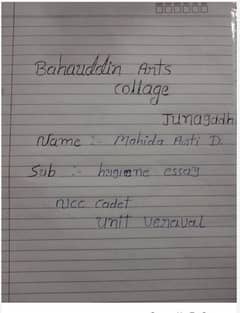 Bahauddin Arts
collage
Junagadh
Name :- Mahida Arti D.
Sub :- hygiene essay
NCC cadet
unit veraval